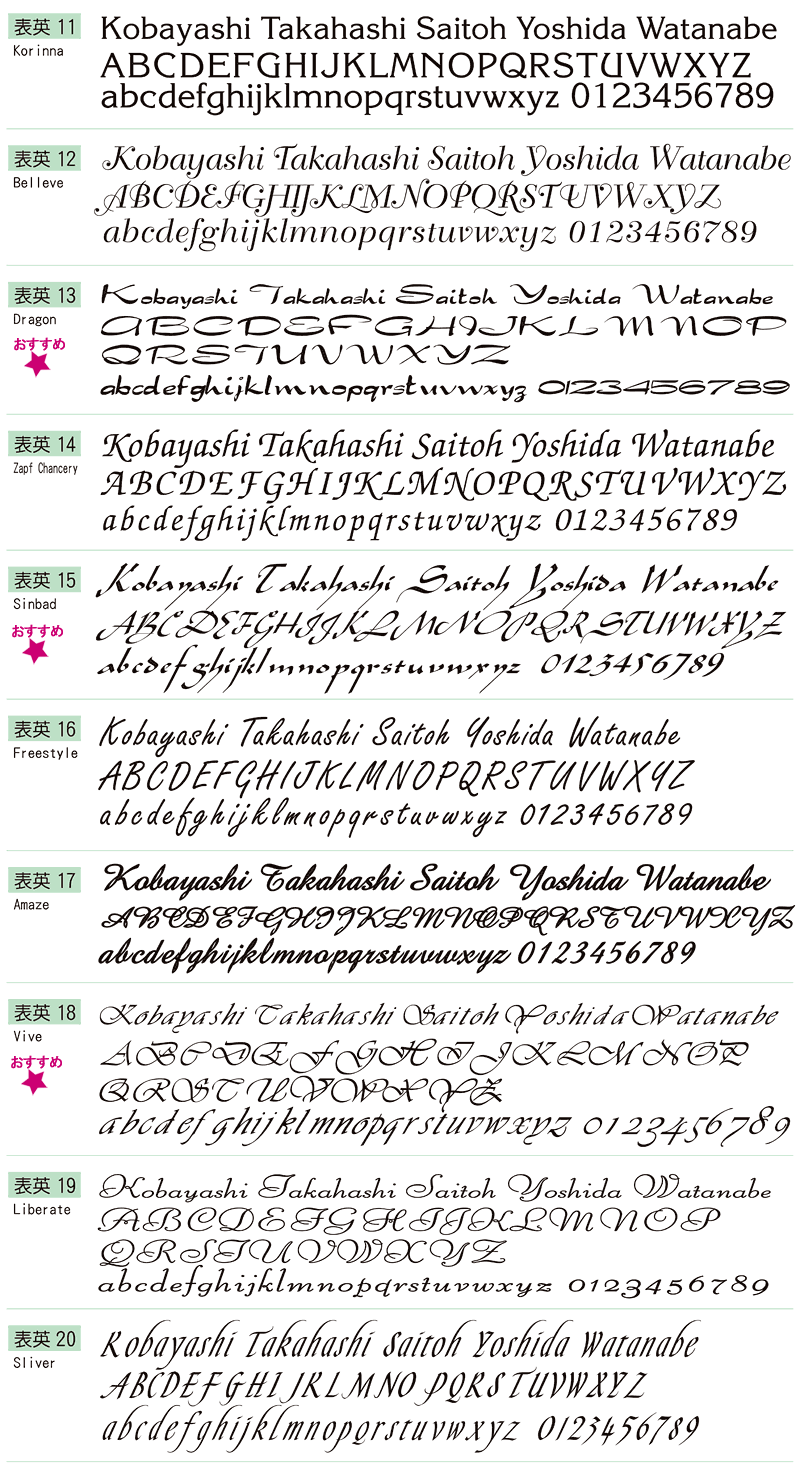 表英 11
Korinna
Kobayashi Takahashi Saitoh Yoshida Watanabe
ABCDEFGHIJKLMNOPQRSTUVWXYZ
abcdefghijklmnopqrstuvwxyz 0123456789
表英 12
Belleve
Kobayashi Takahashi Saitoh Yoshida Watanabe
ABCDEFGHIJKLMNOPQRSTUVWXYZ
abcdefghijklmnopqrstuvwxyz 0123456789
表英 13
Dragon
おすすめ
Kobayashi Takahashi Saitoh Yoshida Watanabe
ABCDEFGHIJKLMNOP
QRSTUVWXYZ
abcdefghijklmnopqrstuvwxyz 0123456789
表英 14
Zapf Chancery
Kobayashi Takahashi Saitoh Yoshida Watanabe
ABCDEFGHIJKLMNOPQRSTUVWXYZ
abcdefghijklmnopqrstuvwxyz 0123456789
表英 15
Sinbad
おすすめ
Kobayashi Takahashi Saitoh Yoshida Watanabe
ABCDEFGHIJKLMNOPQRSTUVWXYZ
abcdefghijklmnopqrstuvwxyz 0123456789
表英 16
Freestyle
Kobayashi Takahashi Saitoh Yoshida Watanabe
ABCDEFGHIJKLMNOPQRSTUVWXYZ
abcdefghijklmnopqrstuvwxyz 0123456789
表英 17
Amaze
Kobayashi Takahashi Saitoh Yoshida Watanabe
ABCDEFGHIJKLMNOPQRSTUVWXYZ
abcdefghijklmnopqrstuvwxyz 0123456789
表英 18
Vive
おすすめ
Kobayashi Takahashi Saitoh Yoshida Watanabe
ABCDEFGHIJKLMNOP
QRSTUVWXYZ
abcdefghijklmnopqrstuvwxyz 0123456789
表英 19
Liberate
Kobayashi Takahashi Saitoh Yoshida Watanabe
ABCDEFGHIJKLMNOP
QRSTUVWXYZ
abcdefghijklmnopqrstuvwxyz 0123456789
表英 20
Sliver
Kobayashi Takahashi Saitoh Yoshida Watanabe
ABCDEFGHIJKLMNOPQRSTUVWXYZ
abcdefghijklmnopqrstuvwxyz 0123456789